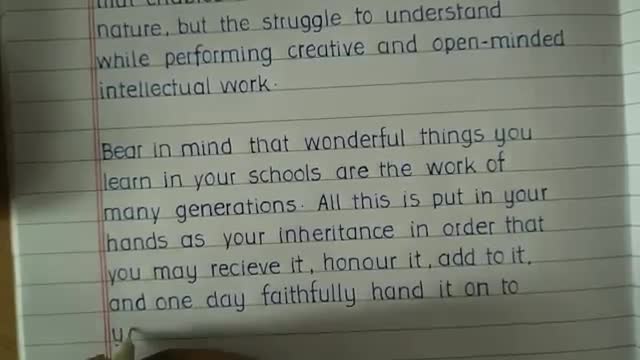 nature, but the struggle to understand
while performing creative and open-minded
intellectual work.
Bear in mind that wonderful things you
learn in your schools are the work of
many generations. All this is put in your
hands as your inheritance in order that
you may recieve it, honour it, add to it,
and one day faithfully hand it on to